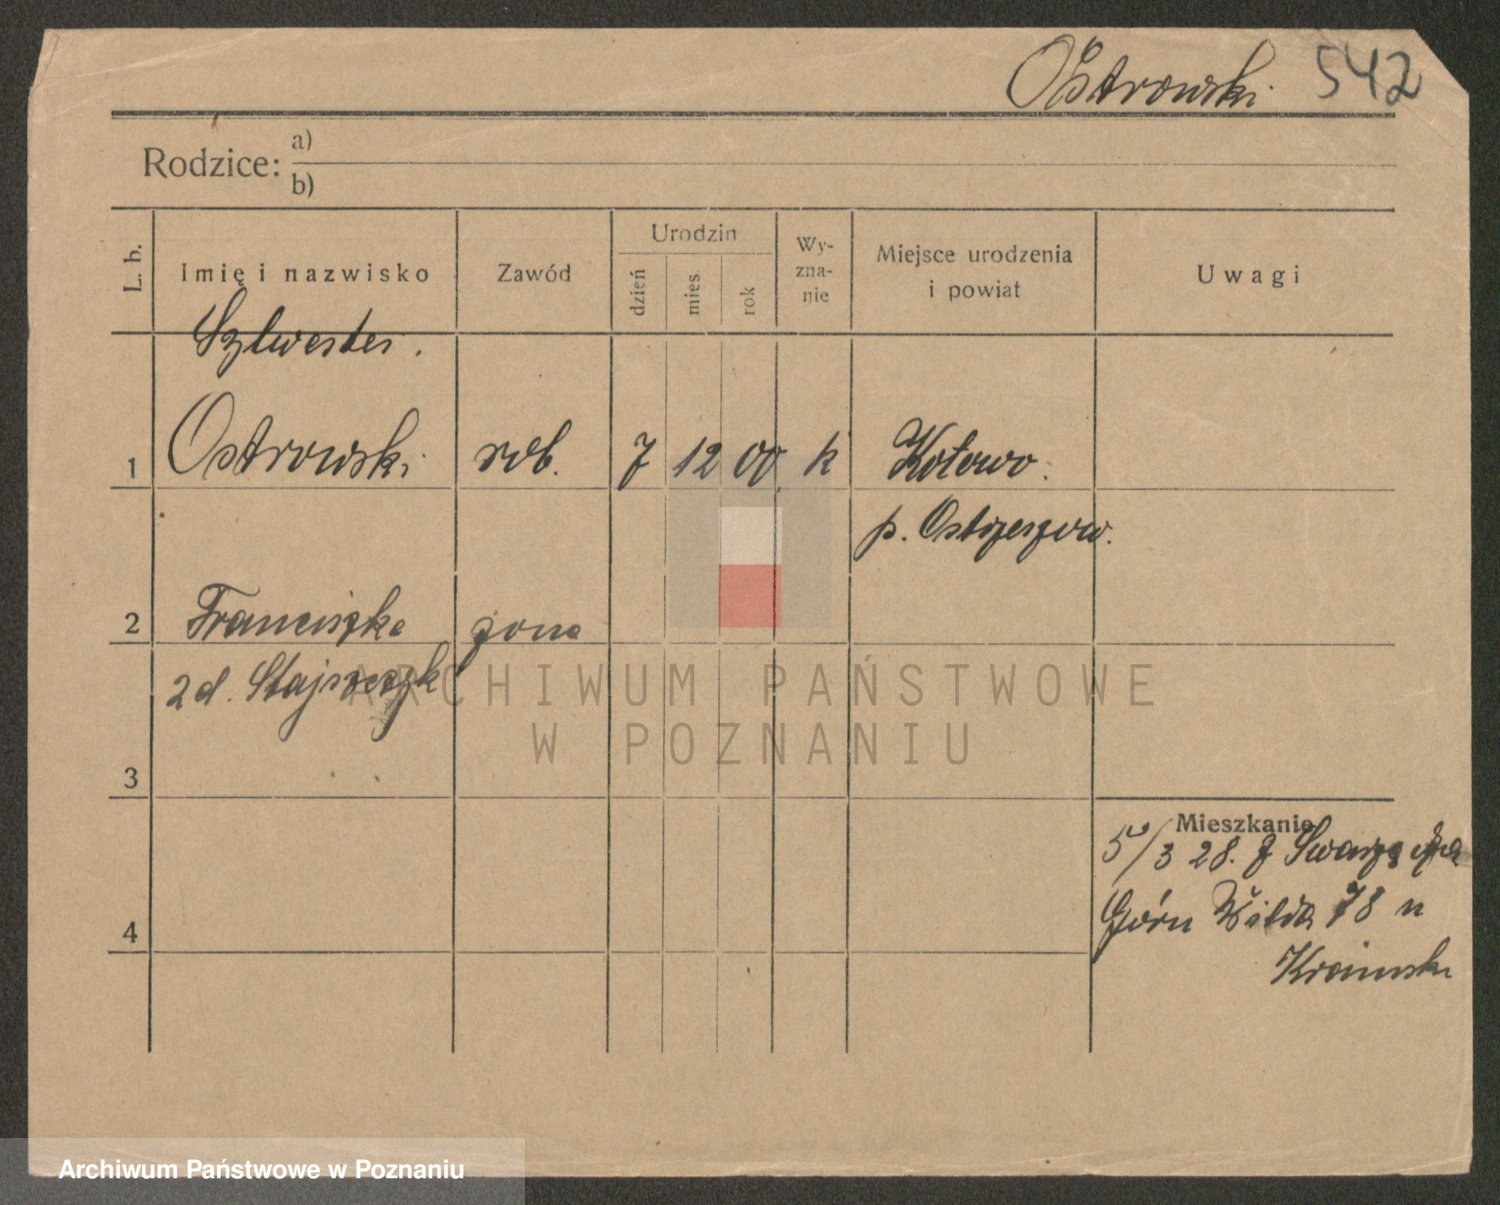 Ostrowski 542
Rodzice: a)
b)
L. b.
Imię i nazwisko
Zawód
Urodzin
dzień
mies.
rok
Wy-
zna-
nie
Miejsce urodzenia
i powiat
Uwagi
Sylwester.
1 Ostrowski rob. 7 12 00 k Kotowo.
p. Ostrzeszow.
2 Franciszka zona
zd.
3
Mieszkanie
5/3 28. z
4 Górn Wilda 78 u
ARCHIWUM PAŃSTWOWE
W POZNANIU
Archiwum Państwowe w Poznaniu